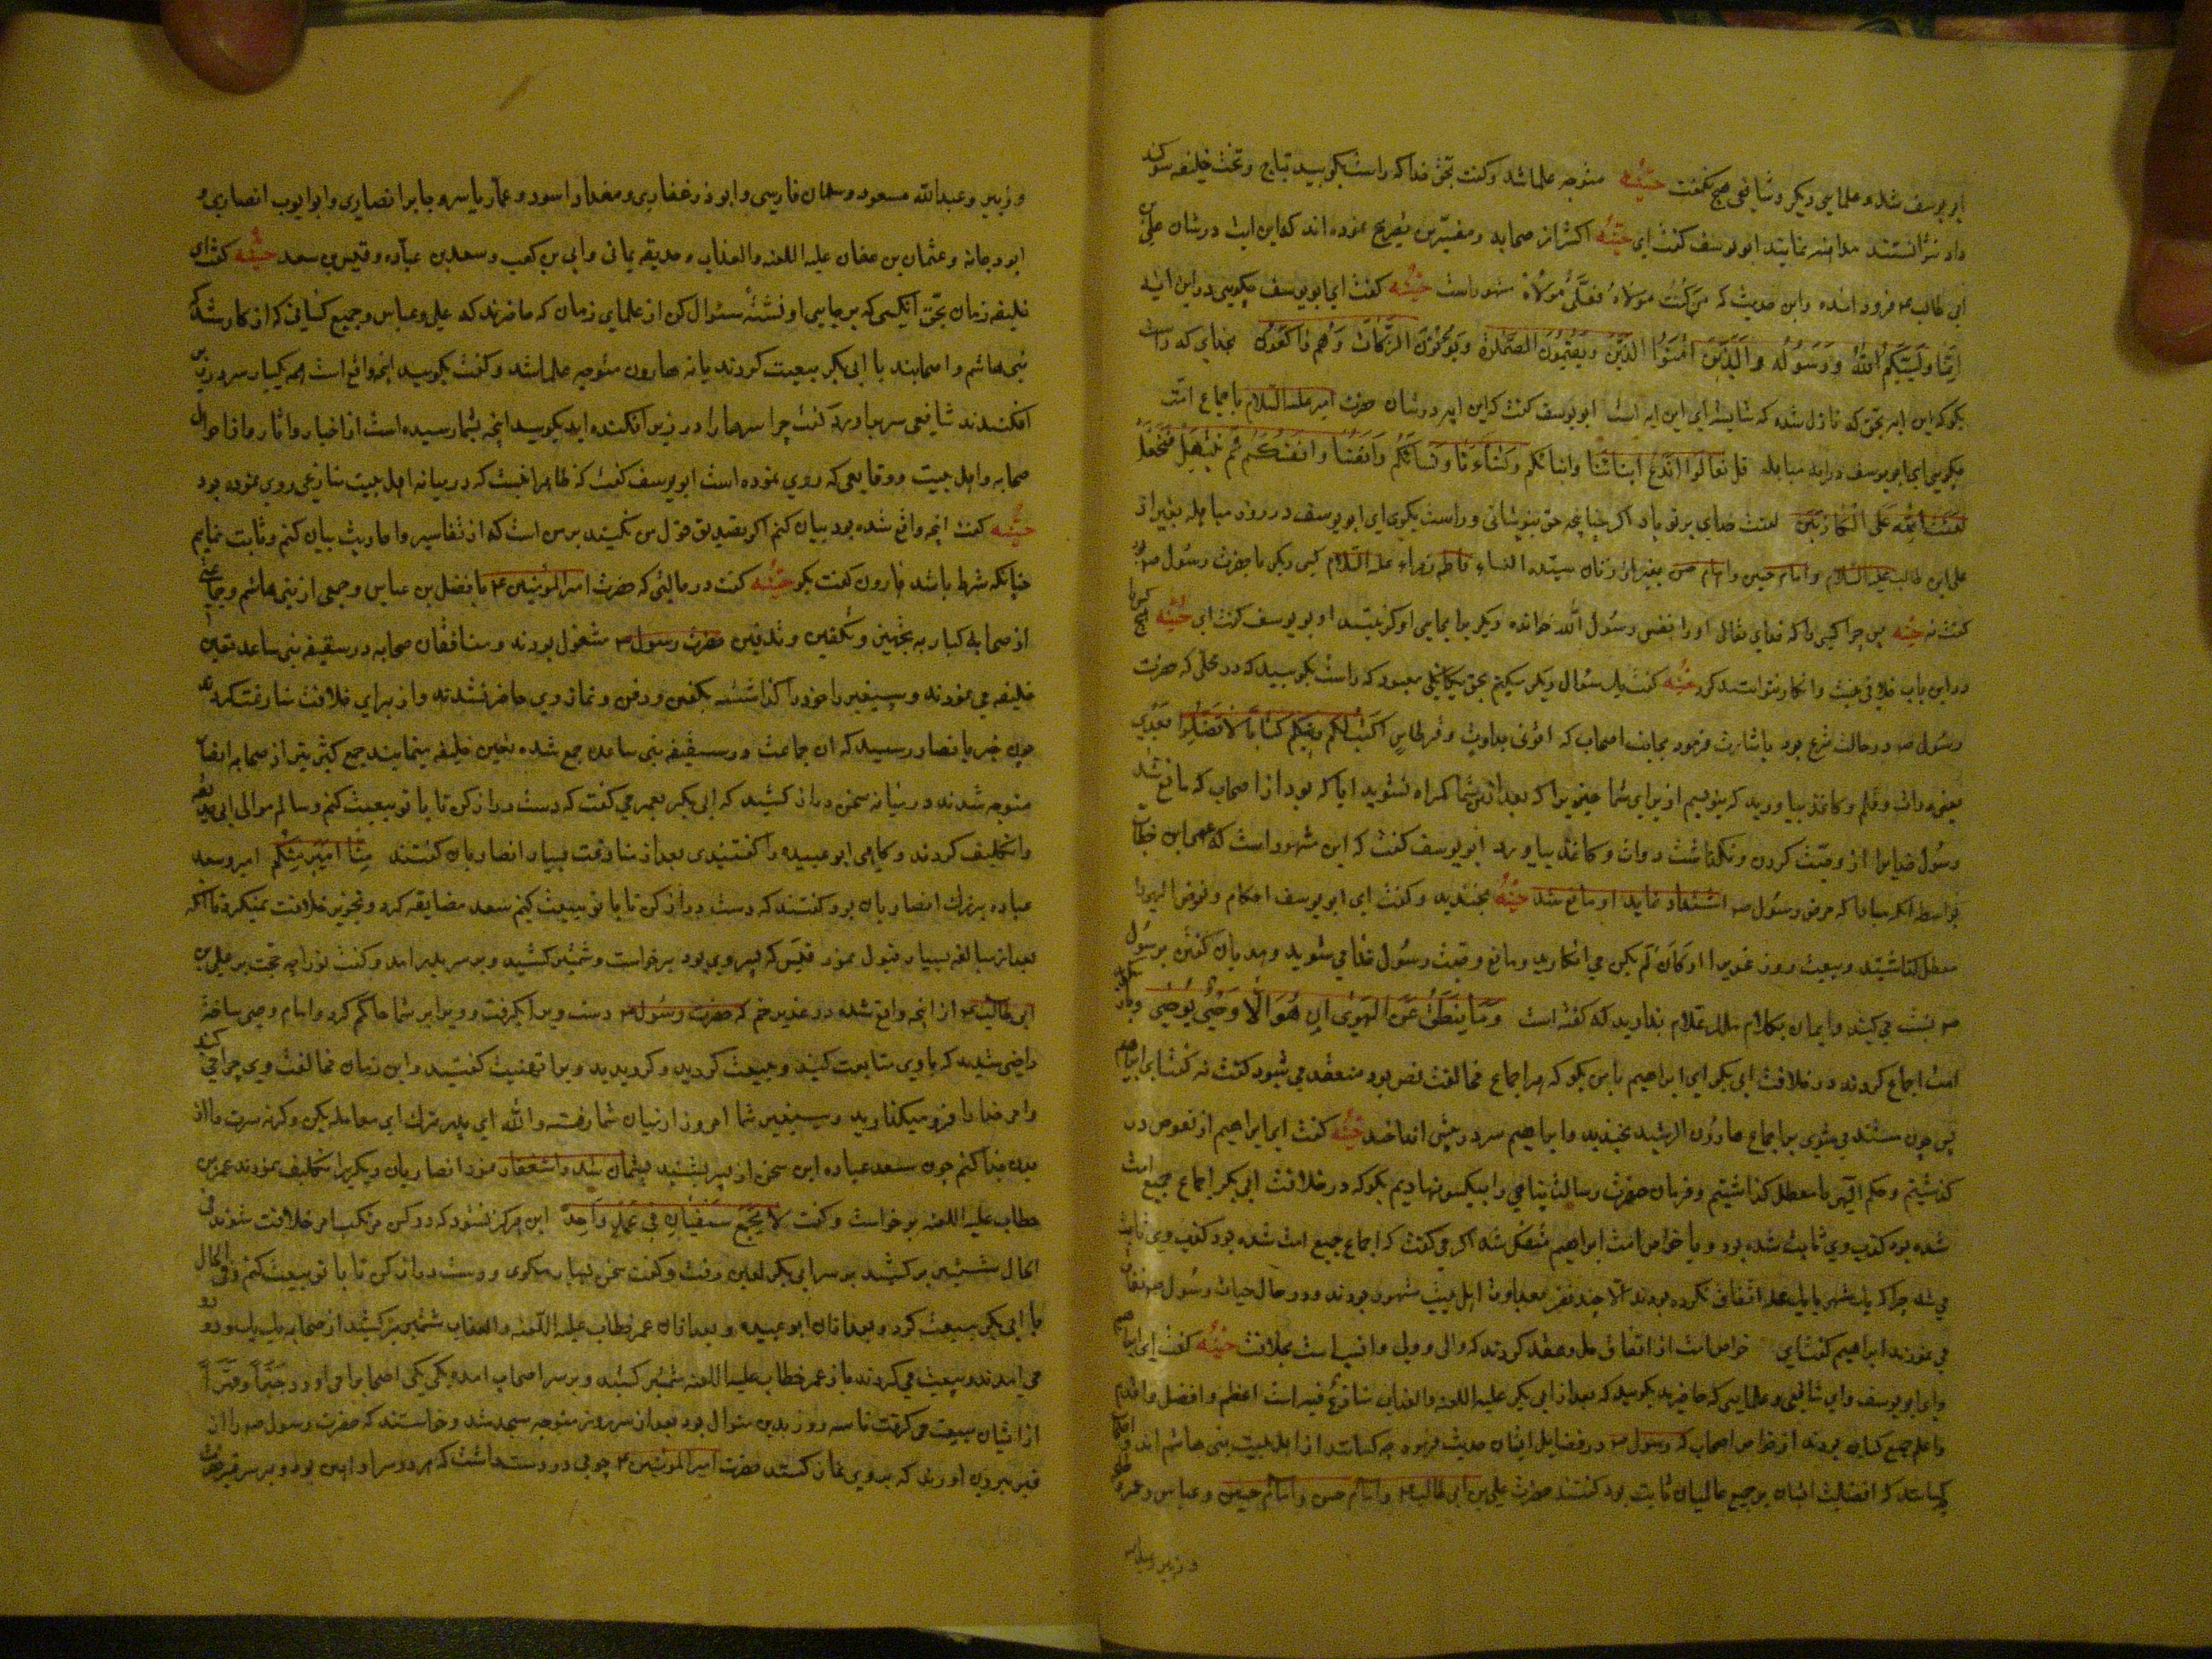 ابو یوسف شد و علمای دیگر و شافعی هیچ نگفت حسنیه متوجه علما شد و گفت بحق خدا که راست بگویید بتاج و تخت خلیفه سوکند
داد نتوانستند مداهنه نمایند ابو یوسف گفت ای حسنیه اکثر از صحابه و مفسرین تصریح نموده اند که این ایت در شان علی بن
ابی طالب ع فرود امده و این حدیث که من کنت مولاه فعلی مولاه مشهور است حسنیه گفت ای ابو یوسف چگویی در این ایه
انما ولیکم الله و رسوله و الذین امنوا الذین یقیمون الصلوة و یؤتون الزکات و هم راکعون بخدای که راست
بگو که این ایه بحق که نازل شده که شایسته ای این ایه است ابو یوسف گفت که این ایه در شان حضرت امیر علیه السلام باجماع امت
چگویی ای ابو یوسف در ایه مباهله قل تعالوا ندع ابنائنا و ابنائکم و نساءنا و نسائکم و انفسنا و انفسکم ثم نبتهل فنجعل
لعنت الله علی الکاذبین لعنت خدای بر تو باد اگر چنانچه حق بپوشانی و راست بگوی ای ابو یوسف در روز مباهله بغیر از
علی ابن طالب علیه السلام و امام حسین و امام حسن بغیر از زنان سیده النساء فاطمه زهراء علیه السلام کسی دیگر با حضرت رسول ص بود
گفت نه حسنیه پس چرا کسی را که خدای تعالی او را نفس رسول الله خوانده دیگر را بجای او گزینید ابو یوسف گفت ای حسنیه هیچ کس را
در این باب خلافی نیست و انکار نتوانند کرد حسنیه گفت یک سوال دیگر میکنم بحق یگانگی معبود که راست بگویید که در محلی که حضرت
رسول ص در حالت نزع بود باشارت فرمود بجانب اصحاب که اتونی بدوات و قرطاس اکتب لکم بینکم کتابا لا تضلوا بعدی
یعنی دوات و قلم و کاغذ بیاورید که بنویسم از برای شما چیزی را که بعد از من شما گمراه نشوید ایا که بود از اصحاب که مانع شد
رسول خدایرا از وصیت کردن و نگذاشت دوات و کاغذ بیاورند ابو یوسف گفت که این مشهور است که عمر ابن خطاب
بواسطه آنکه مبادا که مرض رسول ص اشتداد نماید او مانع شد حسنیه بخندید و گفت ای ابو یوسف احکام و فروض الهی را
معطل گذاشتید و بیعت روز غدیر را کان لم یکن می انگارید و مانع وصیت رسول خدا می شوید و هذیان گفتن بر رسول
ص نسبت می کنید و ایمان بکلام ملک علام ندارید که گفته است و ما ینطق عن الهوی ان هو الا وحی یوحی و
امت اجماع کردند در خلافت ابی بکر ای ابراهیم با من بگو که هر اجماع مخالفت نص بود منعقد می شود گفت نه گفت ای ابراهیم
پس چون مستند می شوی بر اجماع هارون الرشید بخندید و ابراهیم سر در پیش انداخت حسنیه گفت ای ابراهیم از نصوص در
گذشتیم و حکم الهی را معطل گذاشتیم و فرمان حضرت رسالت پناهی را بیکسو نهادیم بگو که در خلافت ابی بکر اجماع جمیع امت
شده بود کذب وی ثابت شده بود و یا خواص امت ابراهیم متفکر شد اگر می گفت که اجماع جمیع امت شده بود کذب وی ثابت
می شد چرا که یک شهر یا یک محله اتفاق نکرده بودند الا چند نفر بعداوت اهل بیت مشهور بودند و در حال حیات رسول ص نفاق
می نمودند ابراهیم گفت ای خواص امت از اتفاق حل و عقد کردند که والی و ولی و انیب است بخلافت حسنیه گفت ای ابراهیم
و ای ابو یوسف و ای شافعی و علمایی که حاضرید بگویید که بعد از ابی بکر علیه اللعنه و العذاب اعظم و افضل و اقدم
و اعلم جمیع کیان بودند از خواص اصحاب که رسول ص در فضایل ایشان حدیث فرموده چه کسانند از اهل بیت بنی هاشم اند
کیانند که افضلیت ایشان بر جمیع عالمیان ثابت بود گفتند حضرت علی بن ابی طالب ع و امام حسن و امام حسین و عباس و حمزه
و زبیر و عبدالله
و زبیر و عبدالله مسعود و سلمان فارسی و ابوذر غفاری و مقداد اسود و عمار یاسر و جابر انصاری و ابو ایوب انصاری و
ابودجانه و عثمان بن عفان علیه اللعنه و العذاب و حذیقه یمانی و ابی بن کعب و سعد بن عباده و قیس بن سعد حسنیه گفت ای
خلیفه زمان بحق آنکسی که بر جایی او نشسته سئوال کن از علمای زمان که حاضرند که علی و عباس و جمیع کسانی که از کار شد
بنی هاشم و اصحابند با ابی بکر بیعت کردند یا نه هارون متوجه علما شد و گفت بگویید انچه واقع است همه یکبار سر در زیر
افکندند شافعی سر براورد گفت چرا سرها را در زیر افکنده اید بگویید انچه بشما رسیده است از اخبار و اثار ما از احوال
صحابه و اهل بیت و وقایعی که روی نموده است ابو یوسف گفت که ظاهرا نیست که در میانه اهل بیت منازعی روی نموده بود
حسنیه گفت انچه واقع شده بود بیان کنم اگر تصدیق قول من نکنید بر من است که از تفاسیر و احادیث بیان کنم و ثابت نمایم
چنانکه شرط باشد هارون گفت بگو حسنیه گفت در حالتی که حضرت امیر المؤمنین ع با فضل بن عباس و جمعی از بنی هاشم و جماعتی
از صحابه کبار به تجهیز و تکفین و تدفین حضرت رسول ص مشغول بودند و منافقان صحابه در سقیفه بنی ساعده تعیین
خلیفه می نمودند و پیغمبر خود را گذاشتند بکفن و دفن و نماز وی حاضر نشدند و از برای خلافت منازعت کردند
چون خبر با نصار رسید که ان جماعت در سقیفه بنی ساعده جمع شده تعیین خلیفه مینمایند جمع کثیر نیز از صحابه انصار
متوجه شدند در میانه سخن دراز کشید که ابی بکر بعمر می گفت که دست دراز کن تا با تو بیعت کنم و سالم موالی ابی حذیفه
و تکلیف کردند و گاهی ابو عبیده را گفتندی بعد از منازعت بسیار انصاریان گفتند منا امیر منکم امیر و سعد
عباده بزرگ انصاریان بود گفتند که دست دراز کن تا با تو بیعت کنیم سعد مضایقه کرد و تجویز خلافت نمیکرد تا انکه
بعد از مبالغه بسیار قبول نمود قیس که پسر وی بود برخواست و شمشیر کشید و بر سر پدر امد و گفت تو را چه حجت بر علی بن
ابی طالب ع از انچه واقع شده در غدیر خم که حضرت رسول ص دست ویرا بگرفت و ویرا بر شما حاکم کرد و امام و وصی ساخت
راضی شدید که با وی متابعت کنید و بیعت کردید و گرویدید و ویرا تهنیت گفتید و این زمان مخالفت وی چرا می کنید
و امر خدا را فرو میگذارید و پیغمبر شما امروز از میان شما رفته و الله ای پدر ترک ای معامله بکن و گرنه سرت را از
بدن جدا کنم چون سعد عباده این سخن از پسر بشنید پشمان شد و استغفار نمود انصاریان دیگریرا تکلیف نمودند عمر بن
خطاب علیه اللعنه برخواست و گفت لا یجتمع سیفان فی غمد واحد این هرگز نشود که دو کس مرتکب امر خلافت شوند فی
الحال شمشیر برکشید بر سر ابی بکر لعین رفت و گفت سخن بسیار میگوی و دست دراز کن تا با تو بیعت کنم و فی الحال
با ابی بکر بیعت کرد و بعد از ان ابو عبیده و بعد از ان عمر خطاب علیه اللعنه و العذاب شمشیر برکشید از صحابه یک یک و دو دو
می امدند و بیعت می کردند باز عمر خطاب علیه اللعنه شمشیر کشیده و بر سر اصحاب امد و یکی یکی اصحاب را می اورد جبرا و قهرا
از ایشان بیعت می گرفت تا سه روز بدین منوال بود بعد از سه روز متوجه مسجد شد و خواستند که حضرت رسول ص را از
قبر بیرون اورند که بر وی نماز کنند حضرت امیر المؤمنین ع چوبی در دست داشت که هر دو سر او اهن بود و بر سر قبر حضرت